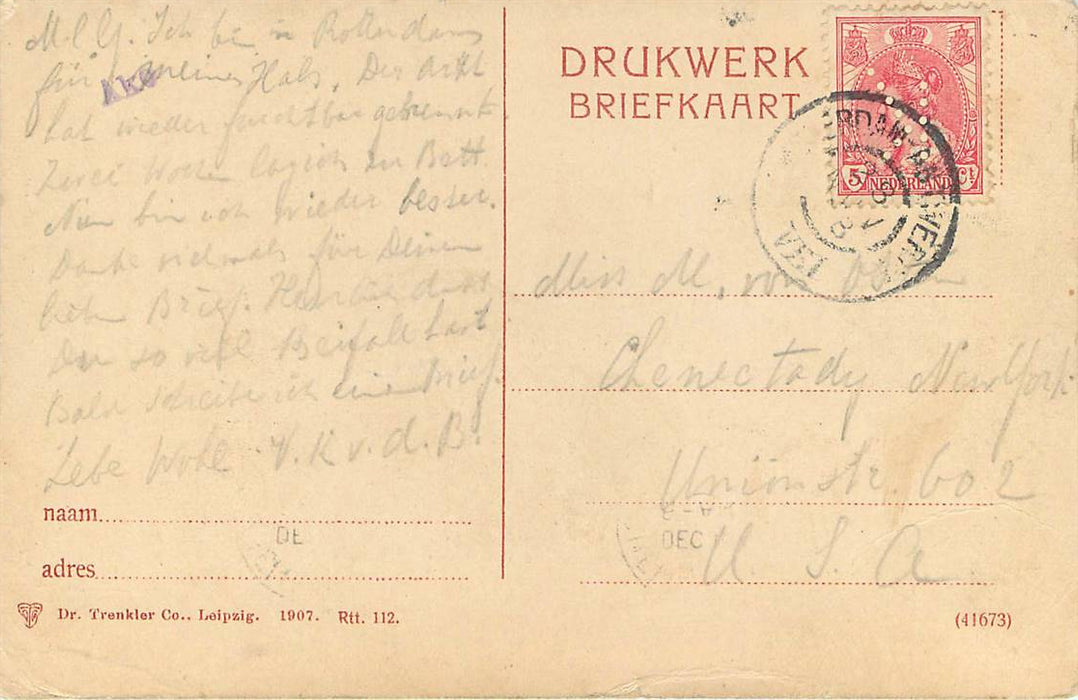 M. l. G. Ich bin in Rotterdam
für meinen Hals. Der Arzt
hat wieder furchtbar gebrannt.
Zwei Wochen lag ich zu Bett
Nun bin ich wieder besser.
Danke vielmals für Deinen
lieben Brief.
Du so viel Beifall hast
Bald schreibe ich einen Brief.
Lebe Wohl V. K. v. d. B.
naam
adres
Dr. Trenkler Co., Leipzig. 1907. Rtt. 112.
DRUKWERK
BRIEFKAART
5 NEDERLAND Ct
Miss M. von
Chenectady New York
Unionstr. 602
U. S. A.
DE
DEC
(41673)